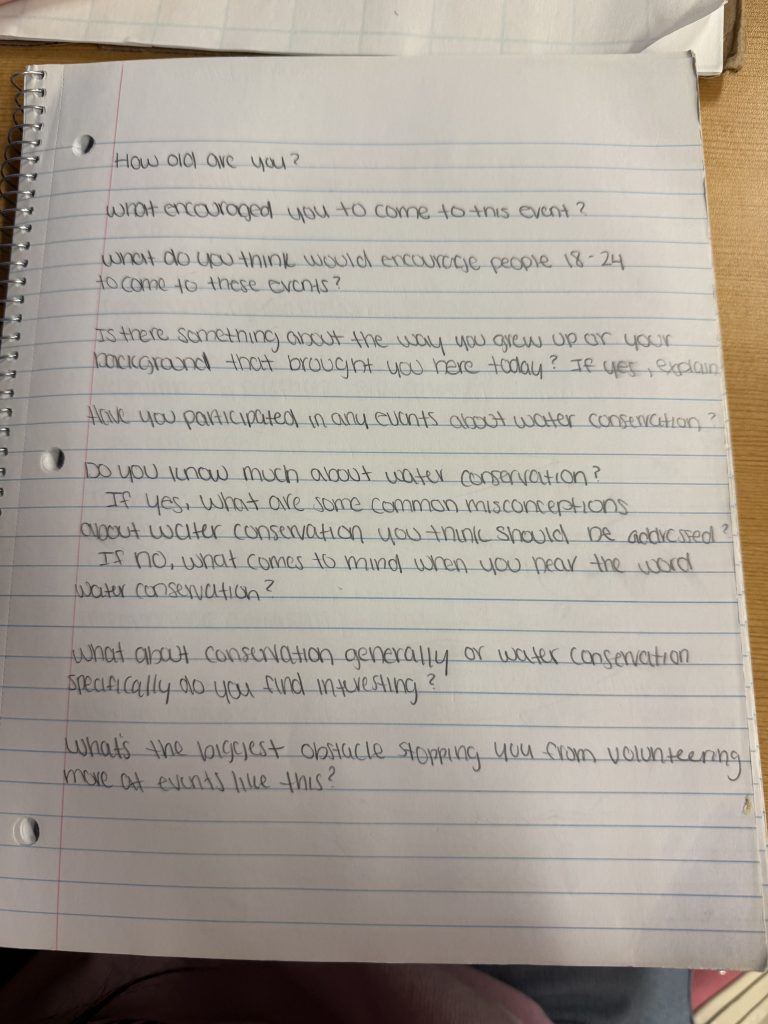 How old are you?
What encouraged you to come to this event?
What do you think would encourage people 18-24
to come to these events?
Is there something about the way you grew up or your
background that brought you here today? If yes, explain
Have you participated in any events about water conservation?
Do you know much about water conservation?
If yes, what are some common misconceptions
about water conservation you think should be addressed?
If no, what comes to mind when you hear the word
water conservation?
What about conservation generally or water conservation
specifically do you find interesting?
What's the biggest obstacle stopping you from volunteering
more at events like this?